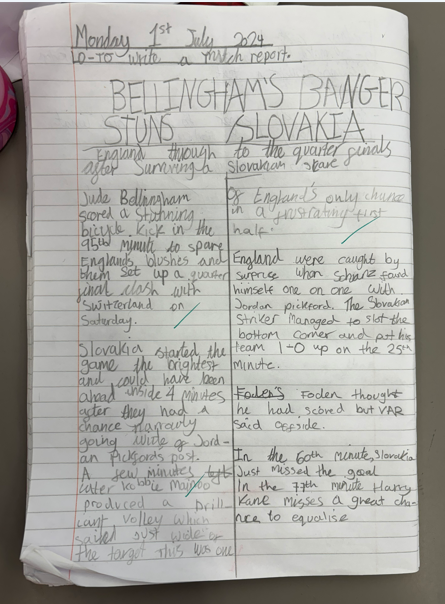 Monday 1st July 2024
LO-TO write a match report.
BELLINGHAM'S BANGER
STUNS SLOVAKIA
England through to the quarter finals
after surviving a Slovakian scare
Jude Bellingham
scored a stunning
bicycle kick in the
95th minute to spare
Englands blushes and
them set up a quarter
final clash with
Switzerland on
Saturday.
Slovakia started the
game the brightest
and could have been
ahead inside 4 minutes
after they had a
chance narrowly
going wide of Jord-
an Pickfords post.
A few minutes
later kobbie Mainoo
produced a brill-
iant volley which
sailed just wide of
the target this was one
of England's only chance
in a frustrating first
half.
England were caught by
surprise when Schranz found
himself one on one with
Jordan pickford. The Slovakian
striker managed to slot the
bottom corner and put his
team 1-0 up on the 25th
minute.
Foden's Foden thought
he had scored but VAR
said offside.
In the 60th minute, Slovakia
Just missed the goal
In the 77th minute Harry
Kane misses a great cha-
nce to equalise